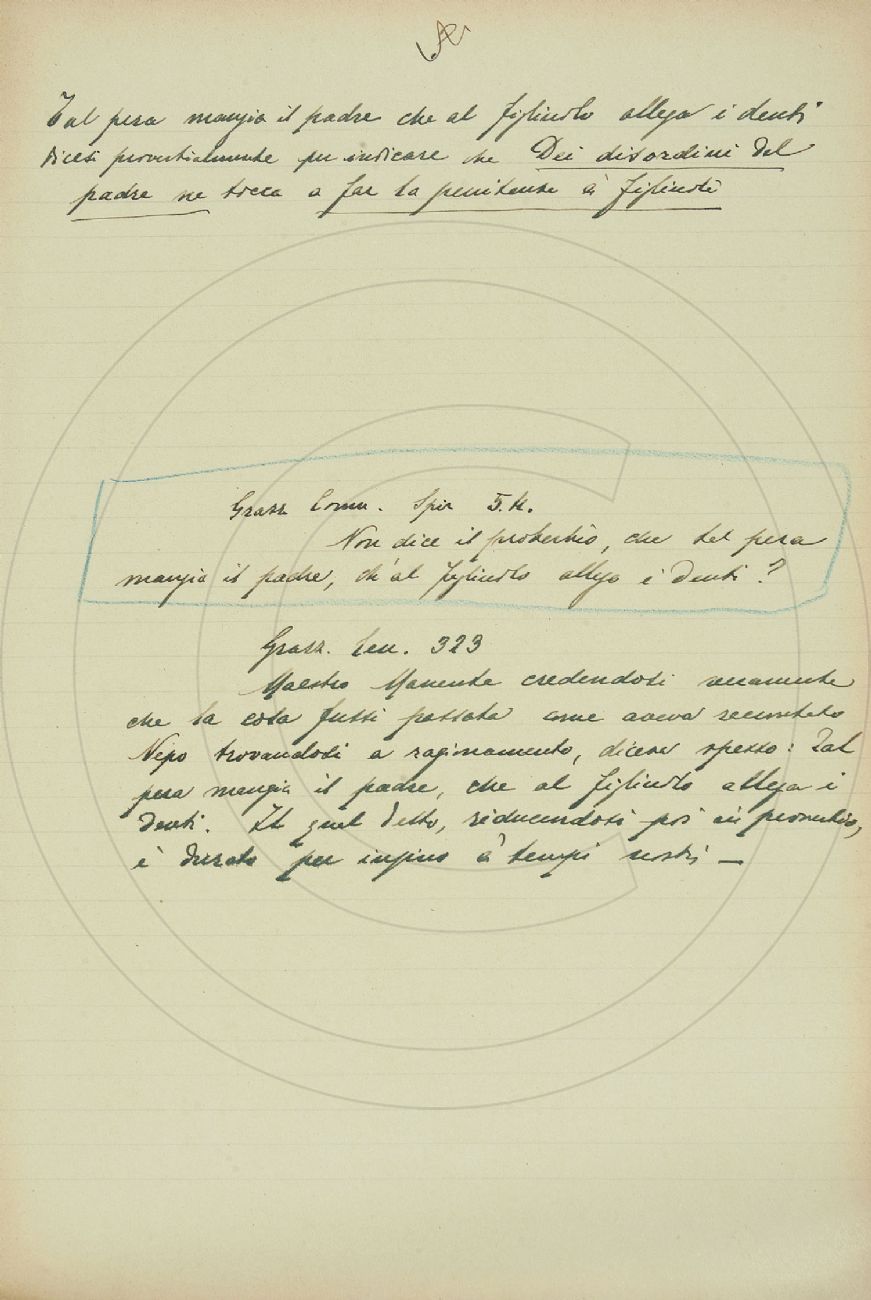 Tal pera mangia il padre che al figliuolo allega i denti
dicesi proverbialmente per indicare che Dei disordini del
padre ne tocca a far la penitenza a' figliuoli
Grazz. Comm. Spir. 5.
Non dice il proverbio, che tal pera
mangia il padre, ch'al figliuolo allega i denti?
Grazz. Cen. 323
Maestro Manente credendosi veramente
che la cosa fussi passata come aveva raccontato
Nepo trovandosi a ragionamento, diceva spesso: Tal
pera mangia il padre, che al figliuolo allega i
denti. Il qual detto, riducendosi poi in proverbio,
è durato per infino a' tempi nostri —